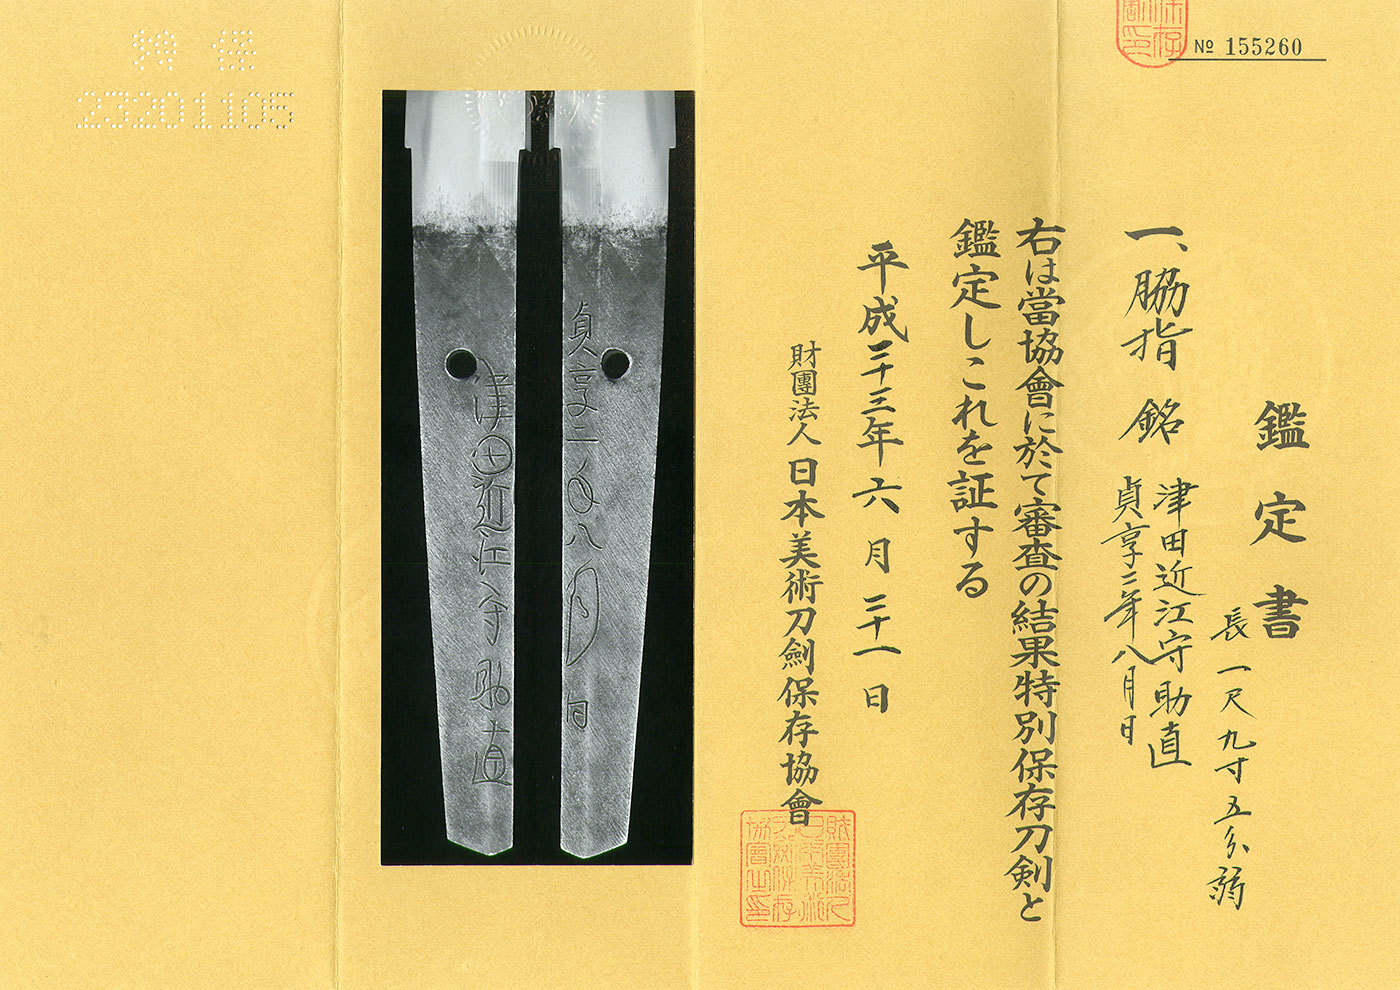 No 155260
鑑定書
一、脇指 銘 津田近江守助直
貞享二年八月日
長一尺九寸五分弱
右は當協會に於て審査の結果特別保存刀剣と
鑑定しこれを証する
平成二十三年六月二十一日
財團法人日本美術刀劍保存協會
貞享二年八月日
津田近江守助直
特保
23201105